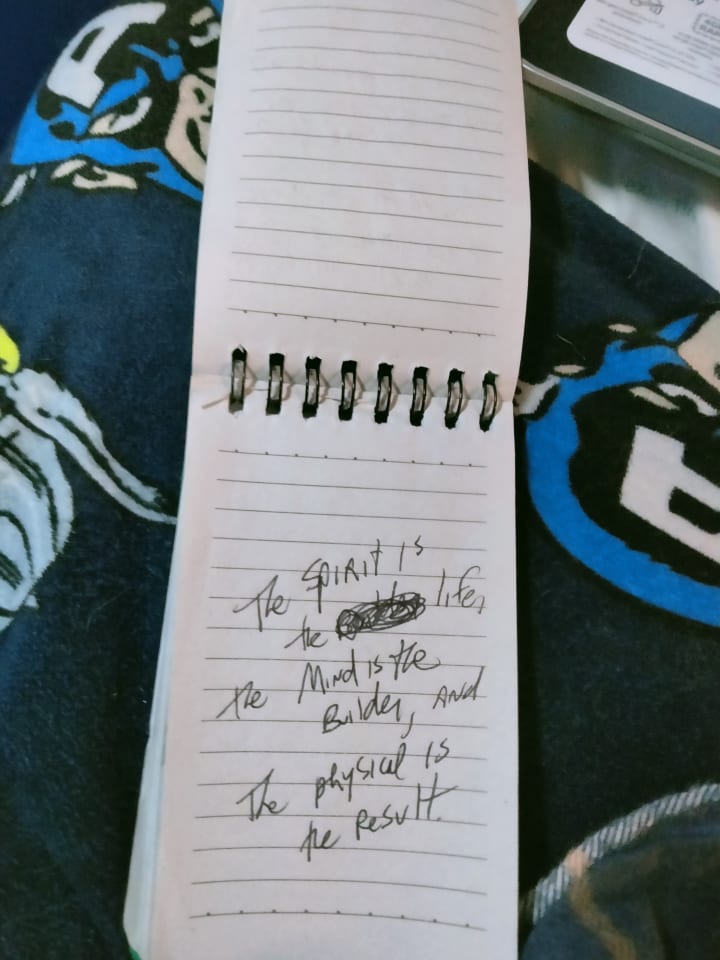 The SPIRIT IS
the life,
the MIND is the
Builder, AND
The physical is
the Result.